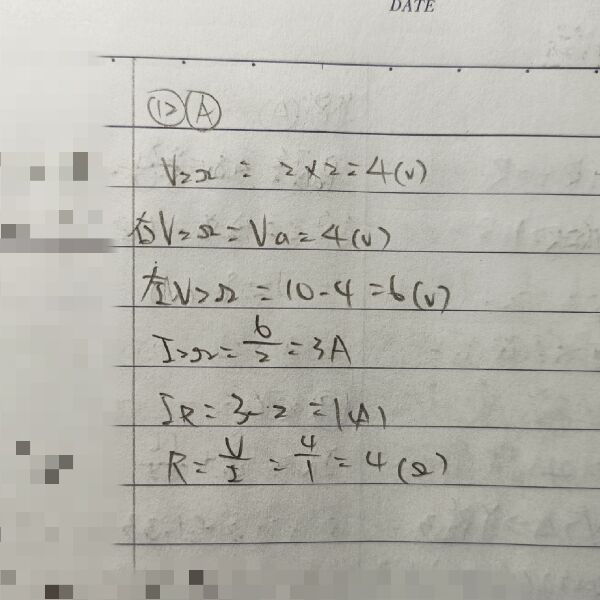 DATE
(1) (A)
V₂Ω = 2×2=4(V)
右V₂Ω=Va=4(V)
左V₂Ω=10-4=6(V)
I₂Ω=6/2=3A
IR=3-2=1(A)
R=V/I=4/1=4(Ω)